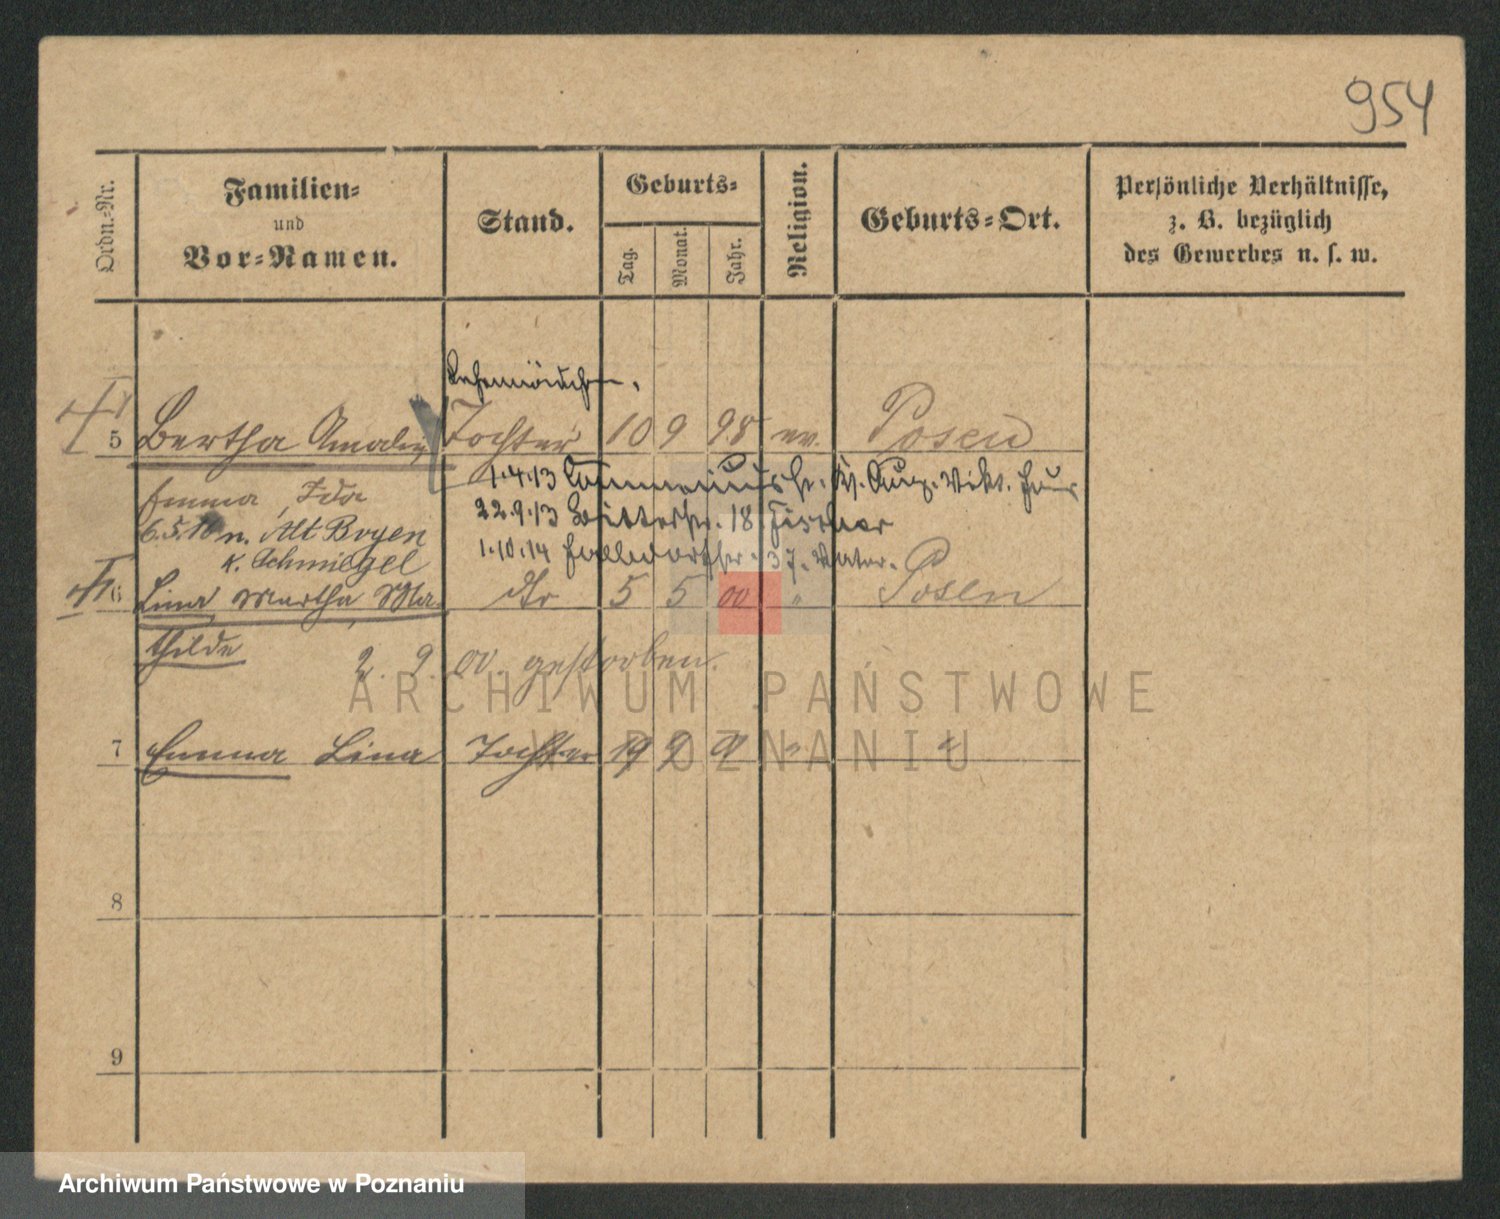 954
Ordn.-Nr.
Familien-
und
Vor-Namen.
Stand.
Geburts-
Tag.
Monat.
Jahr.
Religion.
Geburts-Ort.
Persönliche Verhältnisse,
z. B. bezüglich
des Gewerbes u. s. w.
5 Bertha Amalie Tochter 10 9 98 ev. Posen
Emma, Ida
1.4.13 Aug. Vikt.
6.5.10 n. Alt Boyen
22.9.13 Ritterstr. 18 Fischer
K. Schmiegel
1.10.14 37. Vater.
6 Lina Martha Ma- dto 5 5 00 " Posen
thilde
2. 9. 00. gestorben.
7 Emma Lina Tochter 19 9 " "
8
9
ARCHIWUM PAŃSTWOWE
W POZNANIU
Archiwum Państwowe w Poznaniu